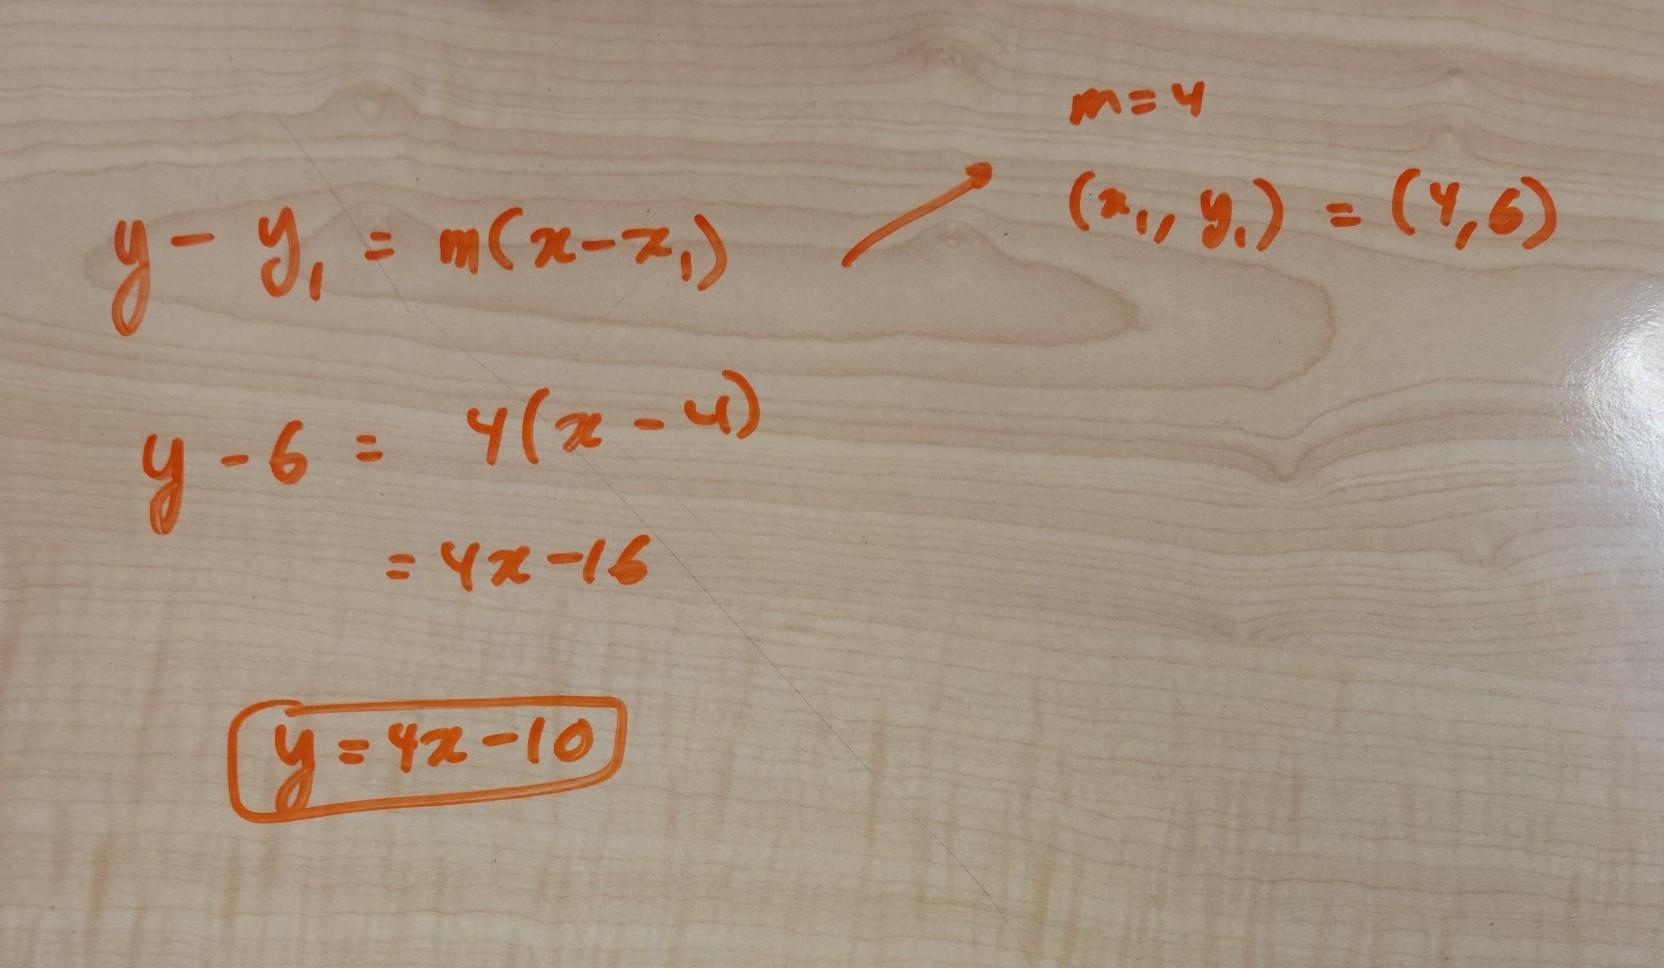 m=4
y - y₁ = m(x-x₁)
(x₁, y₁) = (4,6)
y - 6 = 4(x - 4)
= 4x -16
y = 4x -10